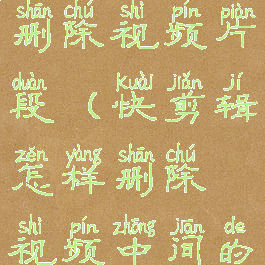 shān chú shì pín piàn
删除视频片
duàn kuài jiǎn jí
段（快剪辑
zěn yàng shān chú
怎样删除
shì pín zhōng jiān de
视频中间的